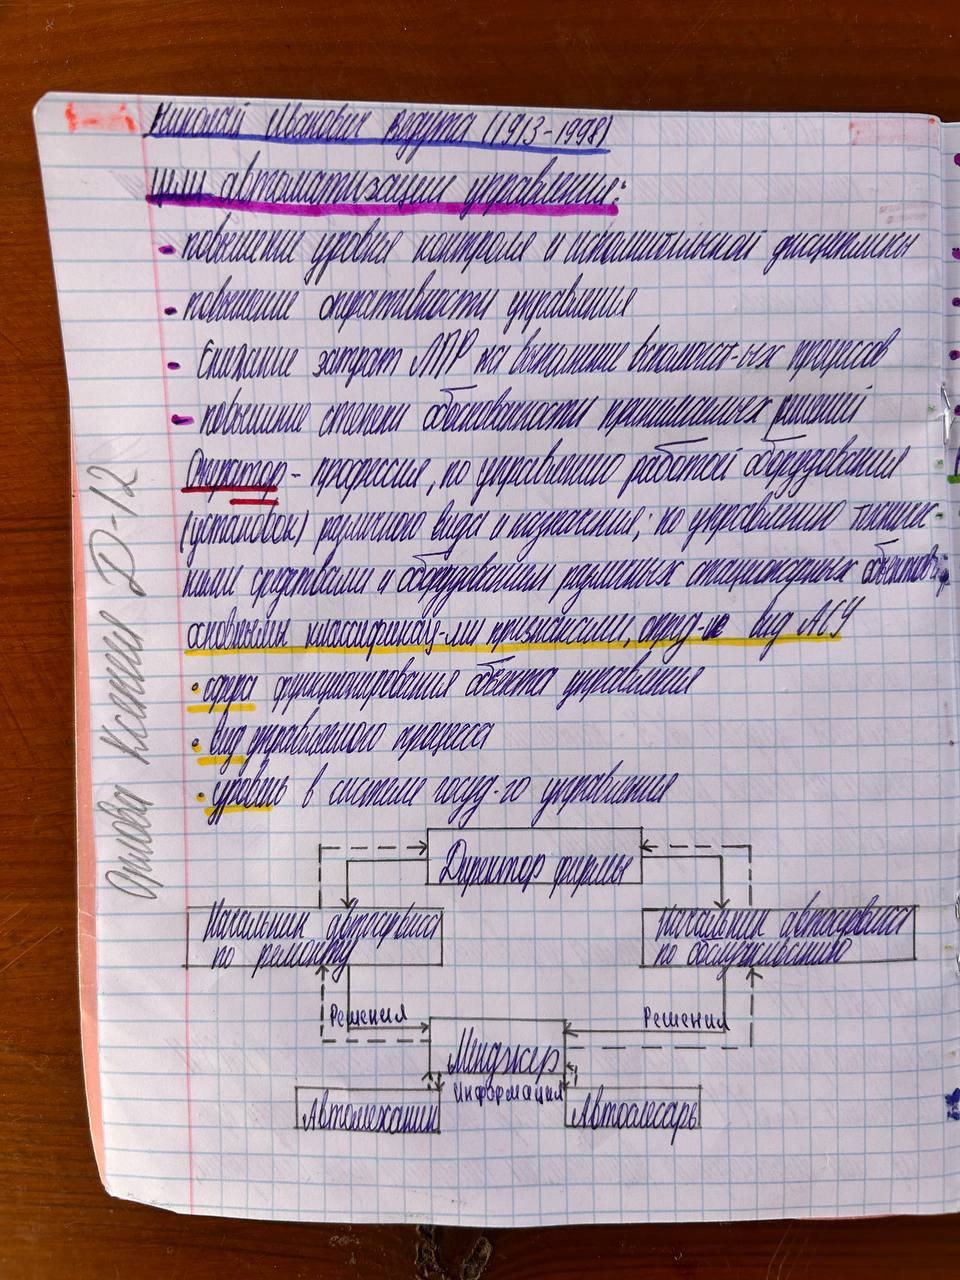 Николай Иванович Ведута (1913-1998)
Цели автоматизации управления:
- повышение уровня контроля и исполнительской дисциплины
- повышение оперативности управления
- Снижение затрат ЛПР на выполнение вспомогат-ых процессов
- повышение степени обоснованности принимаемых решений
Оператор - профессия, по управлению работой оборудования
(установок) различного вида и назначения; по управлению техничес-
кими средствами и оборудованием различных стационарных объектов.
основными классификац-ми признаками, опред-ие вид АСУ
• сфера функционирования объекта управления
• вид управляемого процесса
• уровень в системе госуд-го управления
Директор фирмы
Начальник автосервиса
по ремонту
Начальник автосервиса
по обслуживанию
Решения
Решения
Менджер
Информация
Автомеханик
Автослесарь
Орлова Ксения Д-12